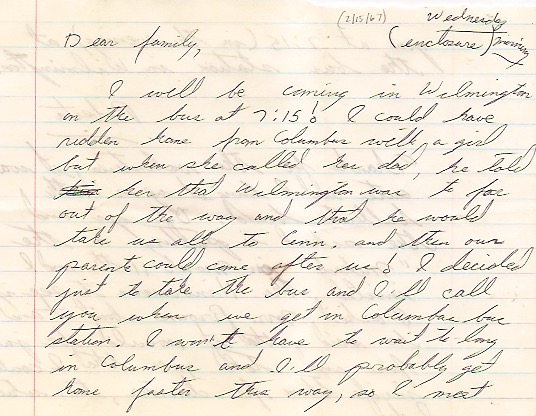 (2/15/67) Wednesday
(enclosure) morning
Dear family,
I will be coming in Wilmington
on the bus at 7:15! I could have
ridden home from Columbus with a girl
but when she called her dad, he told
her that Wilmington was to far
out of the way and that he would
take us all to Cinn. and then our
parents could come after us! I decided
just to take the bus and I'll call
you when we get in Columbus bus
station. I won't have to wait to long
in Columbus and I'll probably get
home faster this way, so I most